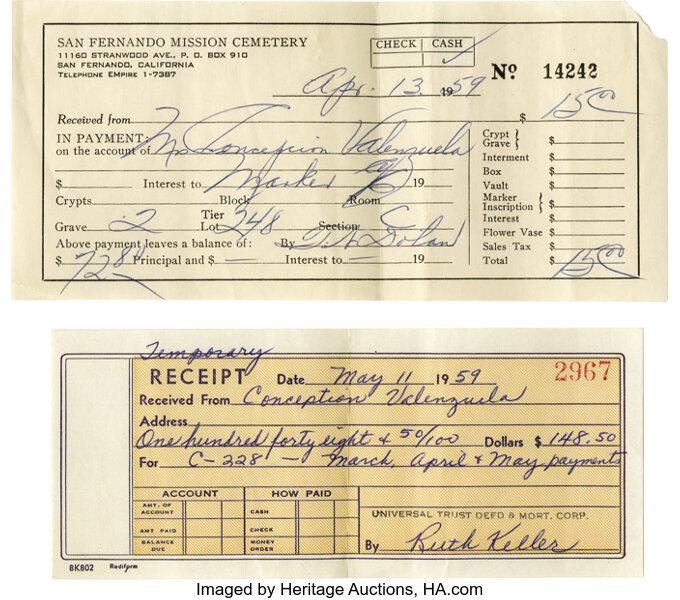 SAN FERNANDO MISSION CEMETERY
11160 STRANWOOD AVE., P. O. BOX 910
SAN FERNANDO, CALIFORNIA
TELEPHONE EMPIRE 1-7387
CHECK CASH
✓
Apr. 13 1959
No 14242
Received from $ 15 00
IN PAYMENT:
on the account of Mrs Concepcion Valenzuela
$ Interest to Marker 19
Crypts Block Room
Grave 2 Tier Lot 248 Section C
Above payment leaves a balance of: By
$ 72 81 Principal and $ — Interest to — 19
Crypt
Grave } $
Interment $
Box $
Vault $
Marker
Inscription } $
Interest $
Flower Vase $
Sales Tax $
Total $ 15 00
Temporary
RECEIPT Date May 11 1959 2967
Received From Conception Valenzuela
Address
One hundred forty eight & 50/100 Dollars $ 148.50
For C-228 — March, April & May payments
ACCOUNT HOW PAID
AMT. OF ACCOUNT CASH
AMT PAID CHECK
BALANCE DUE MONEY ORDER
UNIVERSAL TRUST DEED & MORT. CORP.
By Ruth Keller
8K802 Rediform
Imaged by Heritage Auctions, HA.com